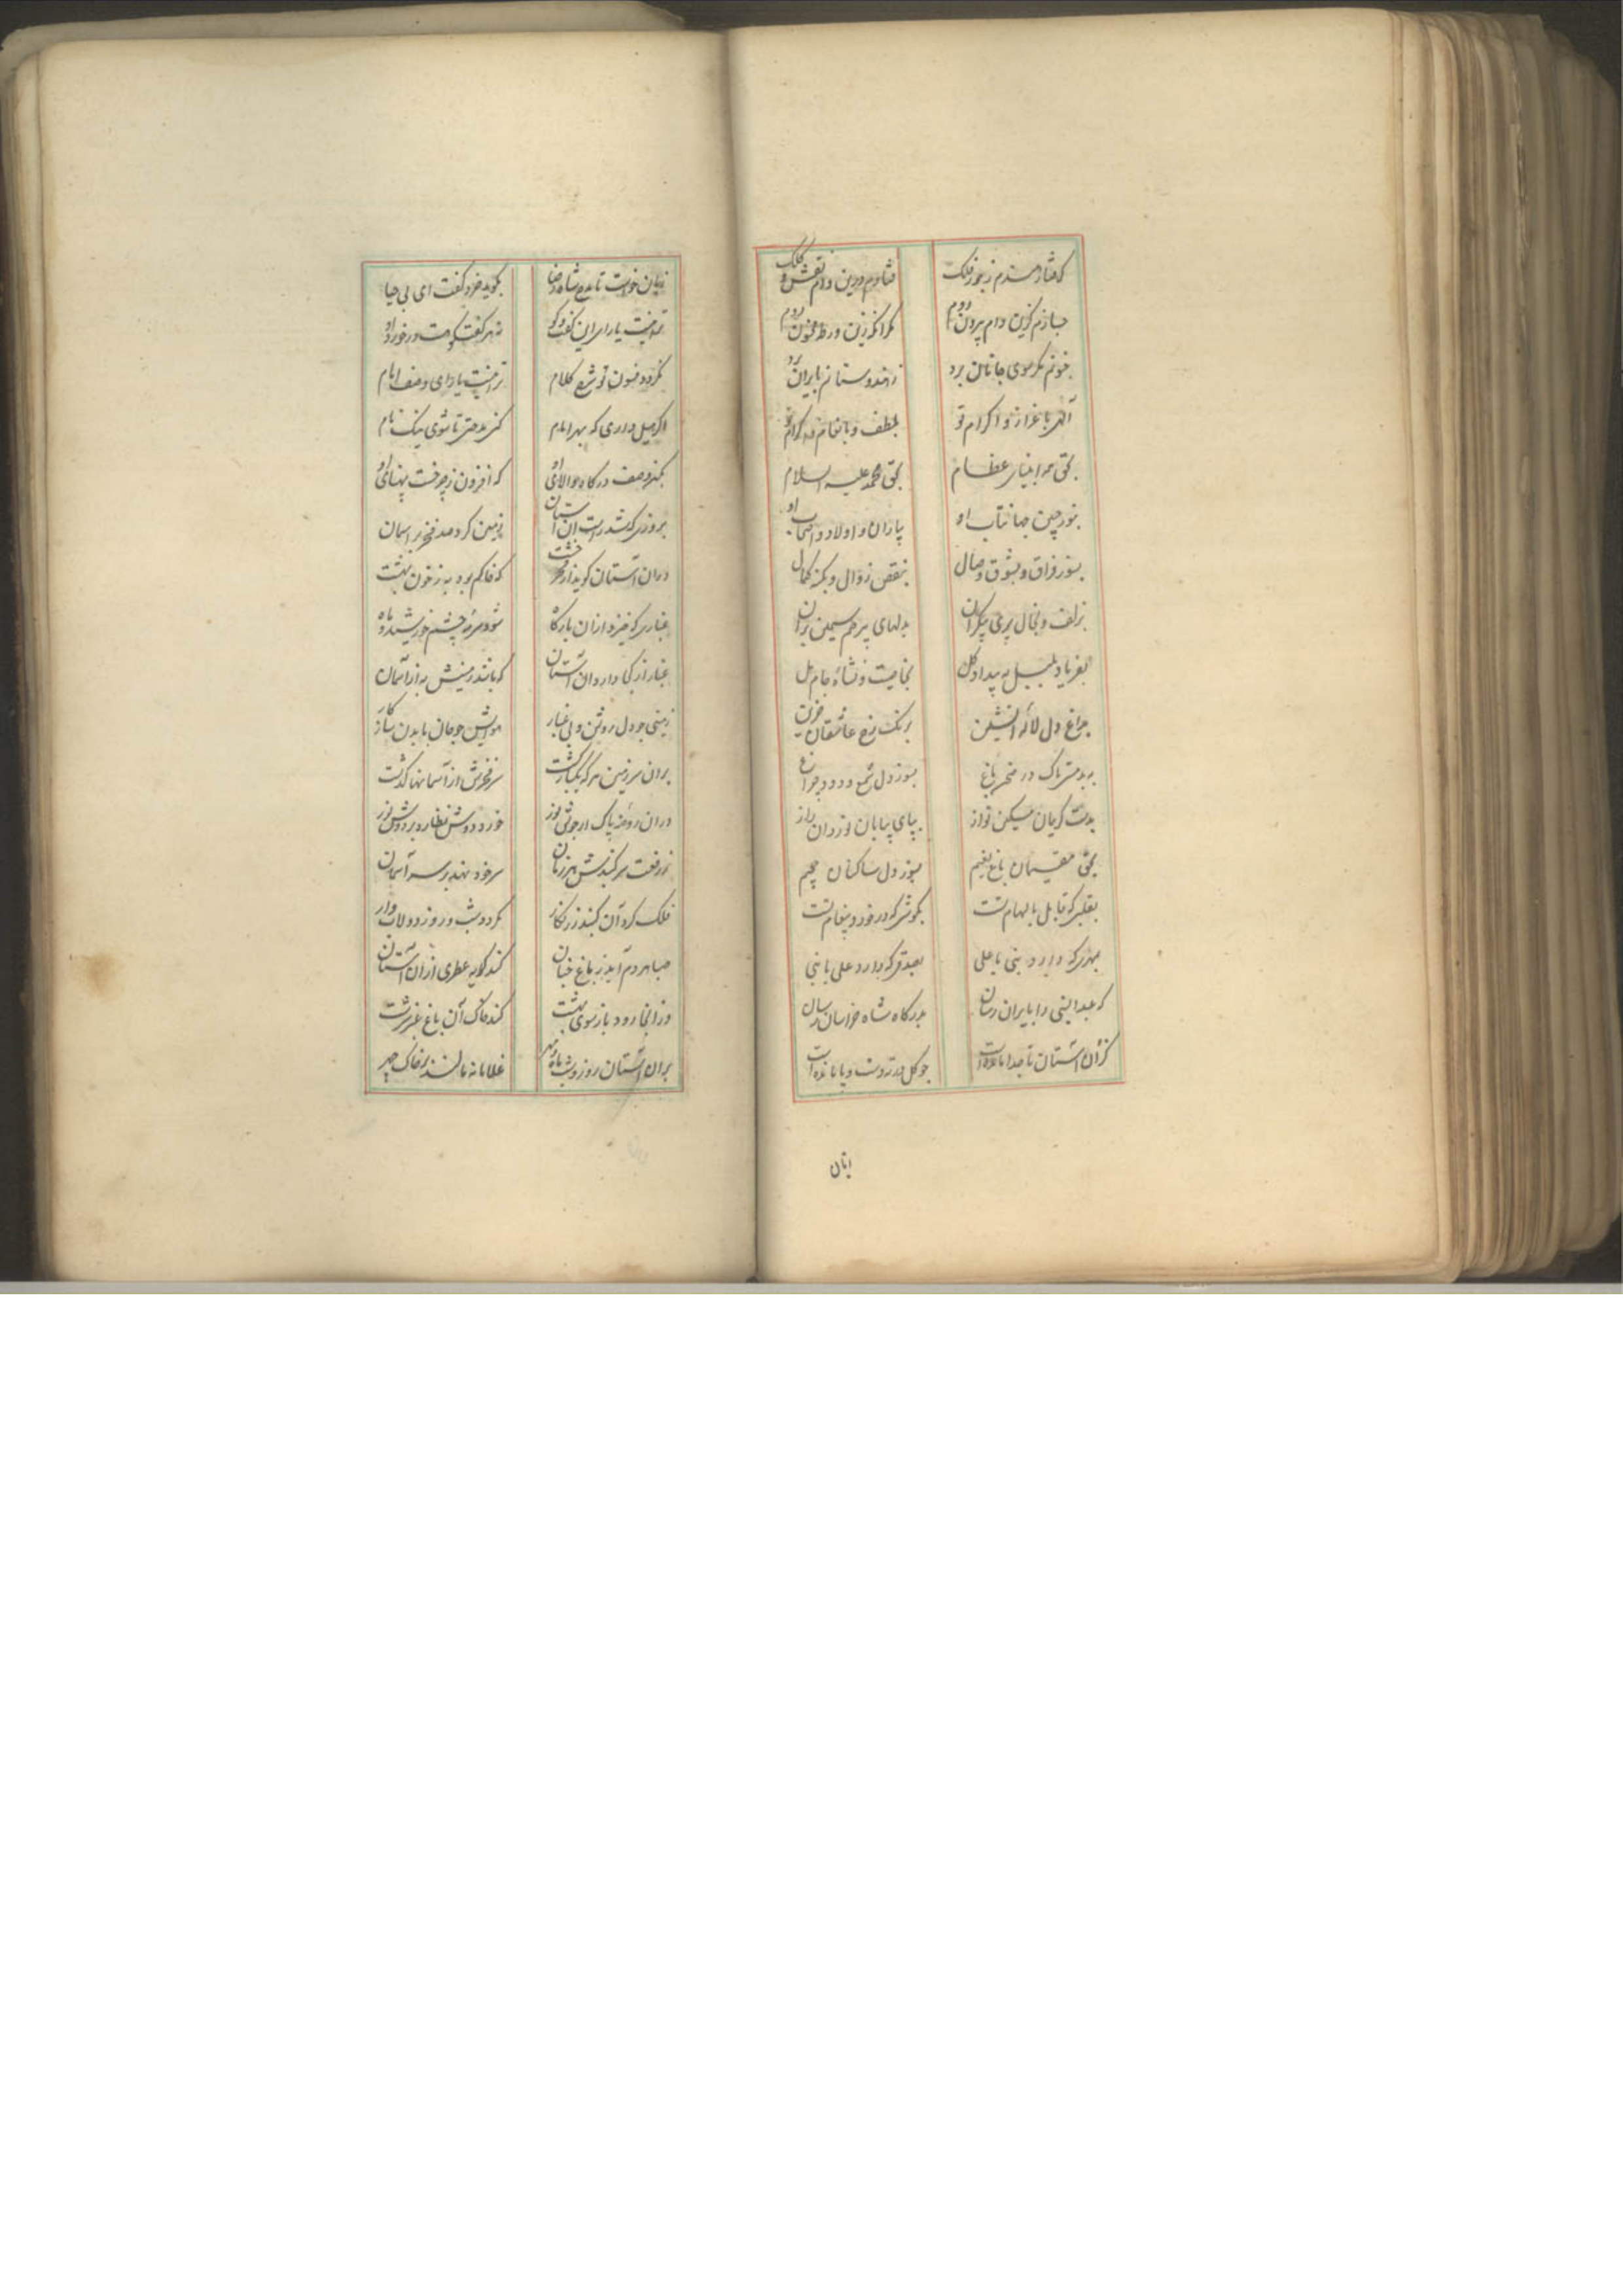 که چشاندم ز جور فلک
فتادم درین دام نقش و کلک
چسازم کزین دام بیرون روم
مگر آنکه زین ورطه بیرون روم
جنونم مگر سوی جانان برد
ز هندوستانم بایران برد
الهی باعزاز و اکرام تو
بلطف و بانعام و اکرام تو
بحق همه انبیای عظام
بحق محمد علیه السلام
بنور جبین جهانتاب او
بیاران و اولاد و اصحاب او
بسوز فراق و بشوق وصال
بنقص زوال و بکنه کمال
بزلف و بخال پری پیکران
بدلهای پر رحم سیمین بران
بفریاد بلبل به بیداد گل
بخاصیت و نشاه جام مل
بداغ دل لاله آتشین
برنگ رخ عاشقان حزین
به بدمستی تاک در صحن باغ
بسوز دل شمع و دود چراغ
بدست کریمان مسکین نواز
بپای بیابان نوردان راز
بحق مقیمان باغ نعیم
بسوز دل ساکنان جحیم
بقلبی که قابل بالهام تست
بگوشی که درخورد پیغام تست
بمهری که دارد نبی با علی
بصدقی که دارد علی با نبی
که عبدالنبی را بایران رسان
بدرگاه شاه خراسان رسان
کزان آستان تا جدا مانده است
چو گل درته دست و پا مانده است
اتان
زبان خواست تا مدح شاه رضا
بگوید خرد گفت ای بی حیا
ترا نیست یارای این گفت و گو
نه هر گفتگو هست درخورد او
نگردد فسون تو شمع کلام
ترا نیست یارای وصف امام
اگر میل داری که بهر امام
کنی مدحتی تا شوی نیک نام
بکن وصف درگاه والای او
که افزون ز چرخست پهنای او
بروزی که شد راست آن آستان
زمین کرد صد فخر بر آسمان
دران آستان گوید از فخر خشت
که خاکم بود به ز خون بهشت
غباری که خیزد ازان بارگاه
شود سرمه چشم خورشید و ماه
غبار از کجا دارد آن آستان
که باشد زمینش به از آسمان
زمینی چو دل روشن و بی غبار
هوایش چو جان با بدن سازگار
بران سرزمین هر که یکبار گشت
سر فخرش از آسمانها گذشت
دران روضه پاک از جوش نور
خورد دوش نظاره بر دوش نور
ز رفعت سر گنبدش هر زمان
سر خود نهد بر سر آسمان
فلک گرد آن گنبد زرنگار
بگردد شب و روز دولاب وار
صبا هر دم آید ز باغ جنان
کند کدیه عطری ازان آستان
وز انجا رود باز سوی بهشت
کند خاک آن باغ عنبر سرشت
بران آستان روز و شب ماه و مهر
غلامانه مالند بر خاک چهر